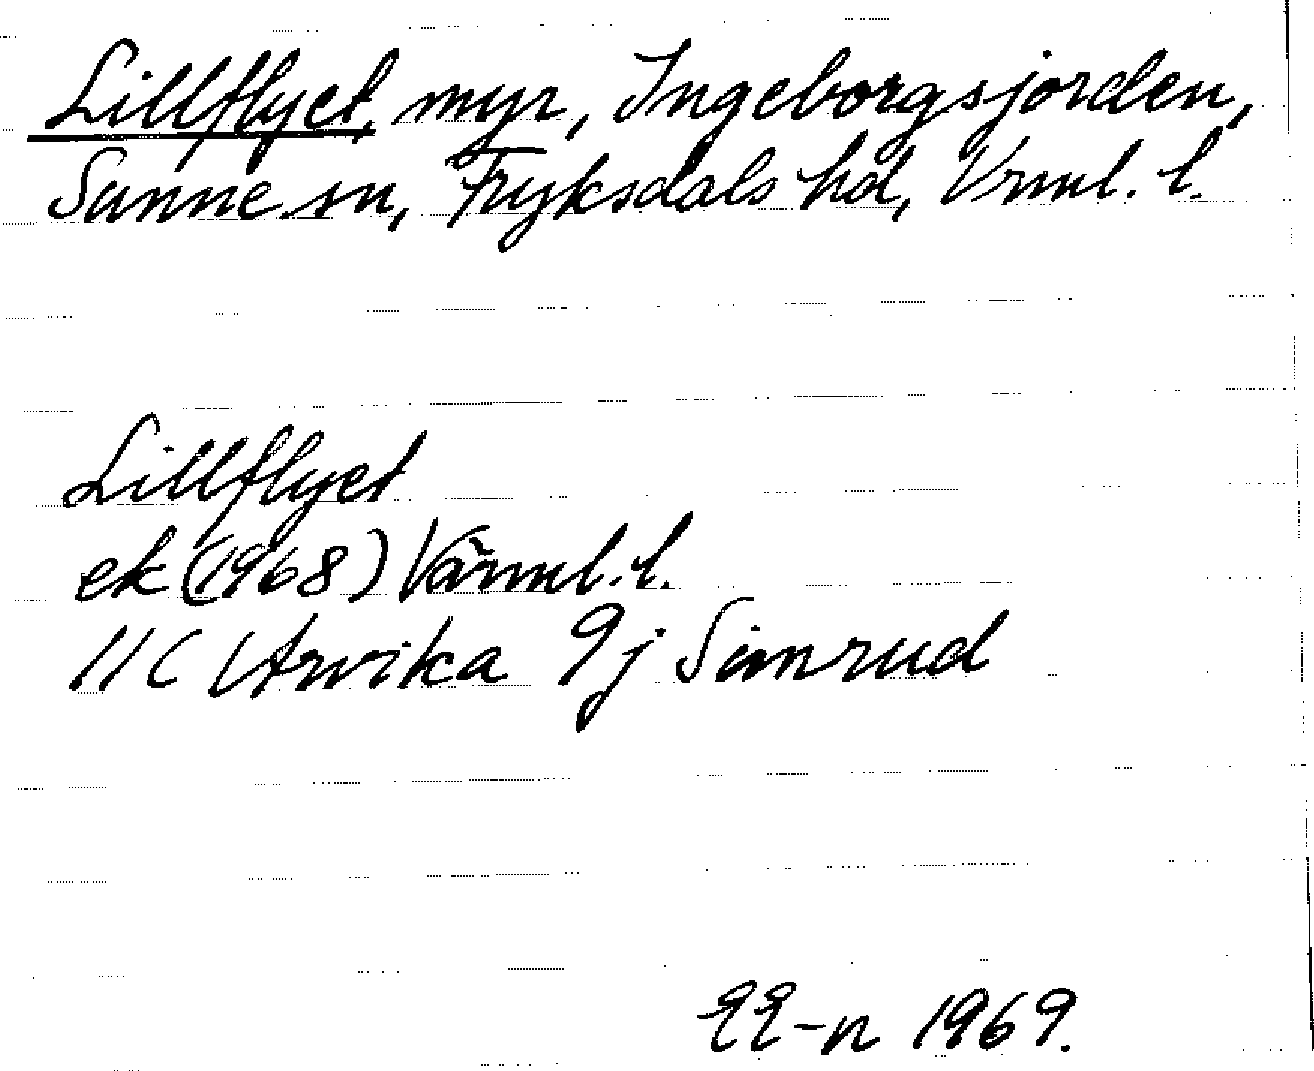 Lillflyet, myr, Ingeborgsjorden,
Sunne sn, Fryksdals hd, Vrml. l.
Lillflyet
ek (1968) Värml. l.
11C Arvika 9j Simrud
EE-n 1969.